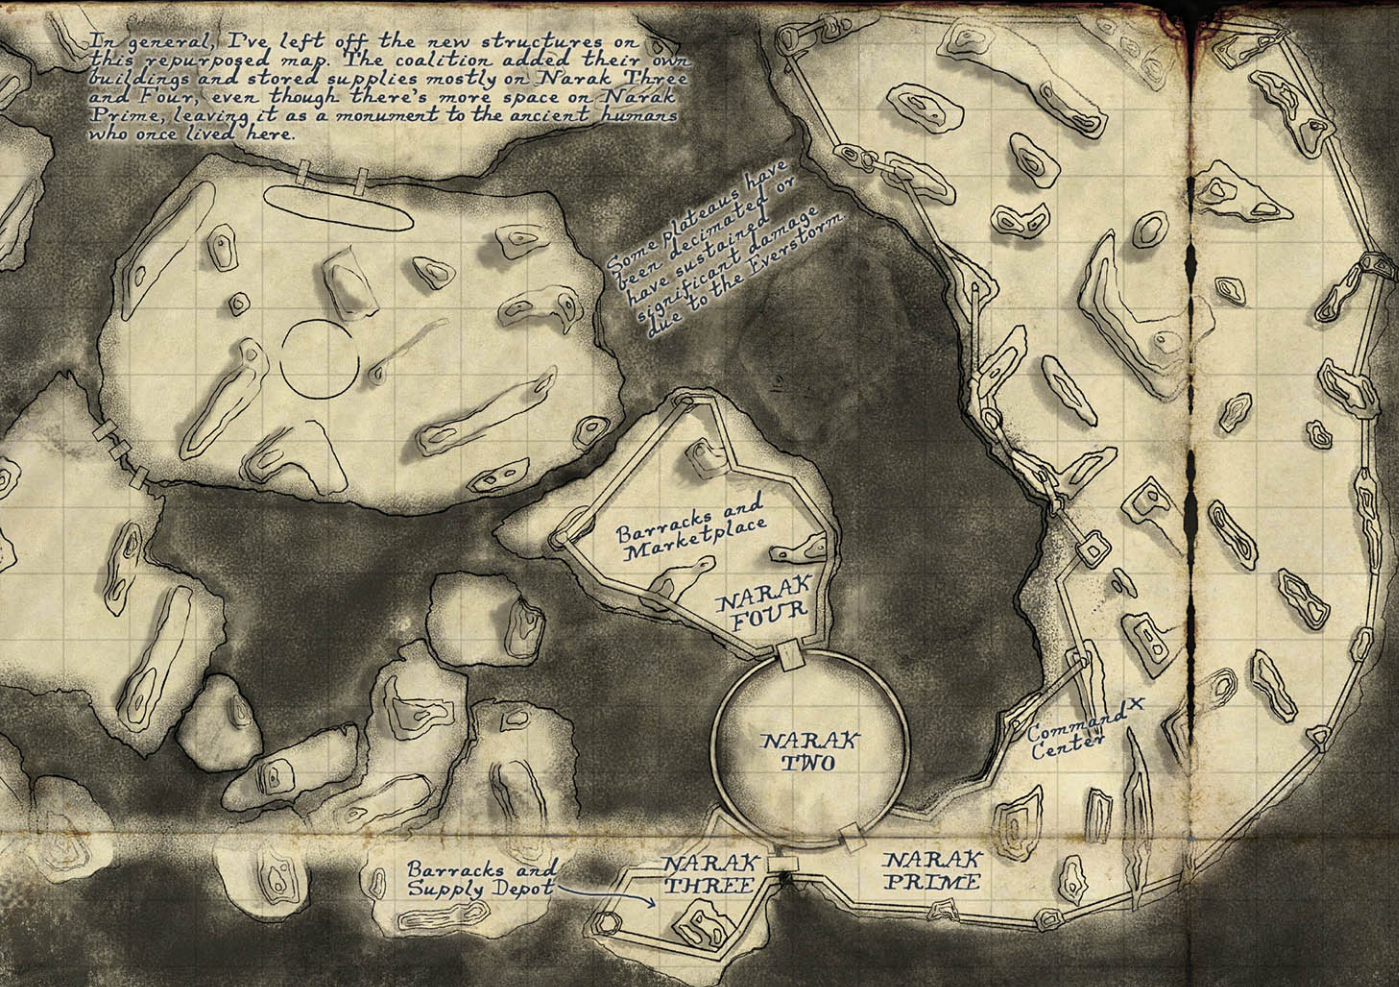 In general, I've left off the new structures on
this repurposed map. The coalition added their own
buildings and stored supplies mostly on Narak Three
and Four, even though there's more space on Narak
Prime, leaving it as a monument to the ancient humans
who once lived here.
Some plateaus have
been decimated or
have sustained
significant damage
due to the Everstorm.
Barracks and
Marketplace
NARAK
FOUR
NARAK
TWO
Command X
Center
Barracks and
Supply Depot
NARAK
THREE
NARAK
PRIME